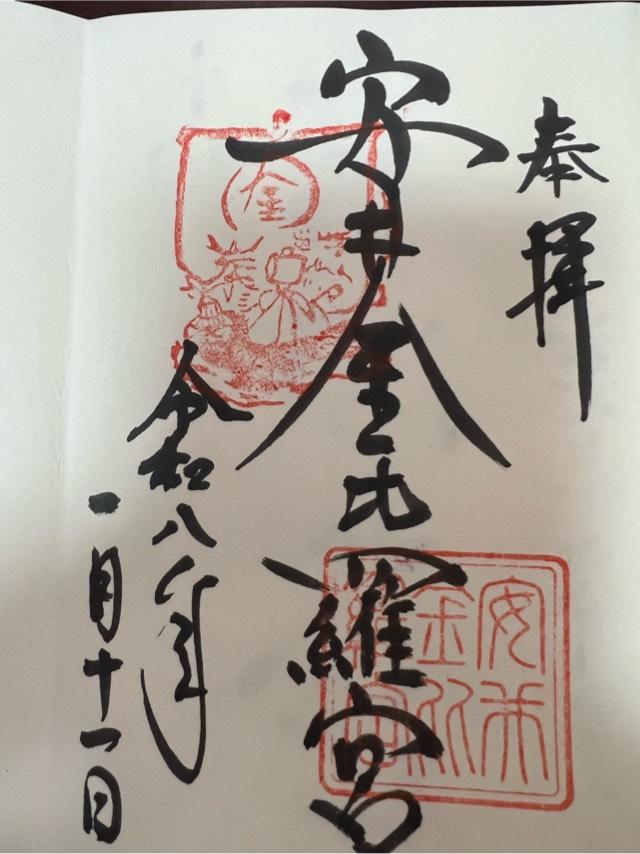 奉拝
安井金比羅宮
令和八年
一月十一日
金
安井
金比
羅宮